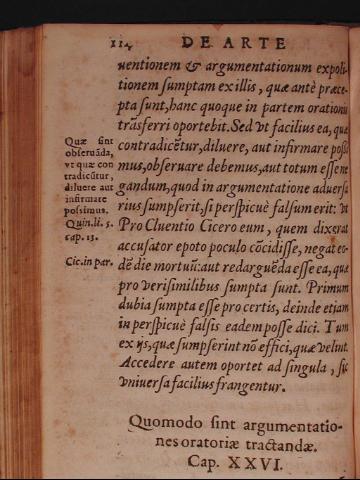 114 DE ARTE
uentionem & argumentationum expoli-
tionem sumptam ex illis, quæ antè præce-
pta sunt, hanc quoque in partem orationis
trãsferri oportebit. Sed vt facilius ea, quæ
contradicẽtur, diluere, aut infirmare possi-
mus, obseruare debemus, aut totum esse ne
gandum, quod in argumentatione aduersa
rius sumpserit, si perspicuè falsum erit: vt
Pro Cluentio Cicero eum, quem dixerat
accusator epoto poculo cõcidisse, negat eo-
dẽ die mortuũ: aut redarguẽda esse ea, quæ
pro verisimilibus sumpta sunt. Primum
dubia sumpta esse pro certis, deinde etiam
in perspicuè falsis eadem posse dici. Tum
ex ijs, quæ sumpserint nõ effici, quæ velint.
Accedere autem oportet ad singula, sic
vniuersa facilius frangentur.
Quæ sint
obseruãda,
vt quæ con
tradicũtur,
diluere aut
infirmare
possimus.
Quin. li. 5.
cap. 13.
Cic. in par.
Quomodo sint argumentatio-
nes oratoriæ tractandæ.
Cap. XXVI.